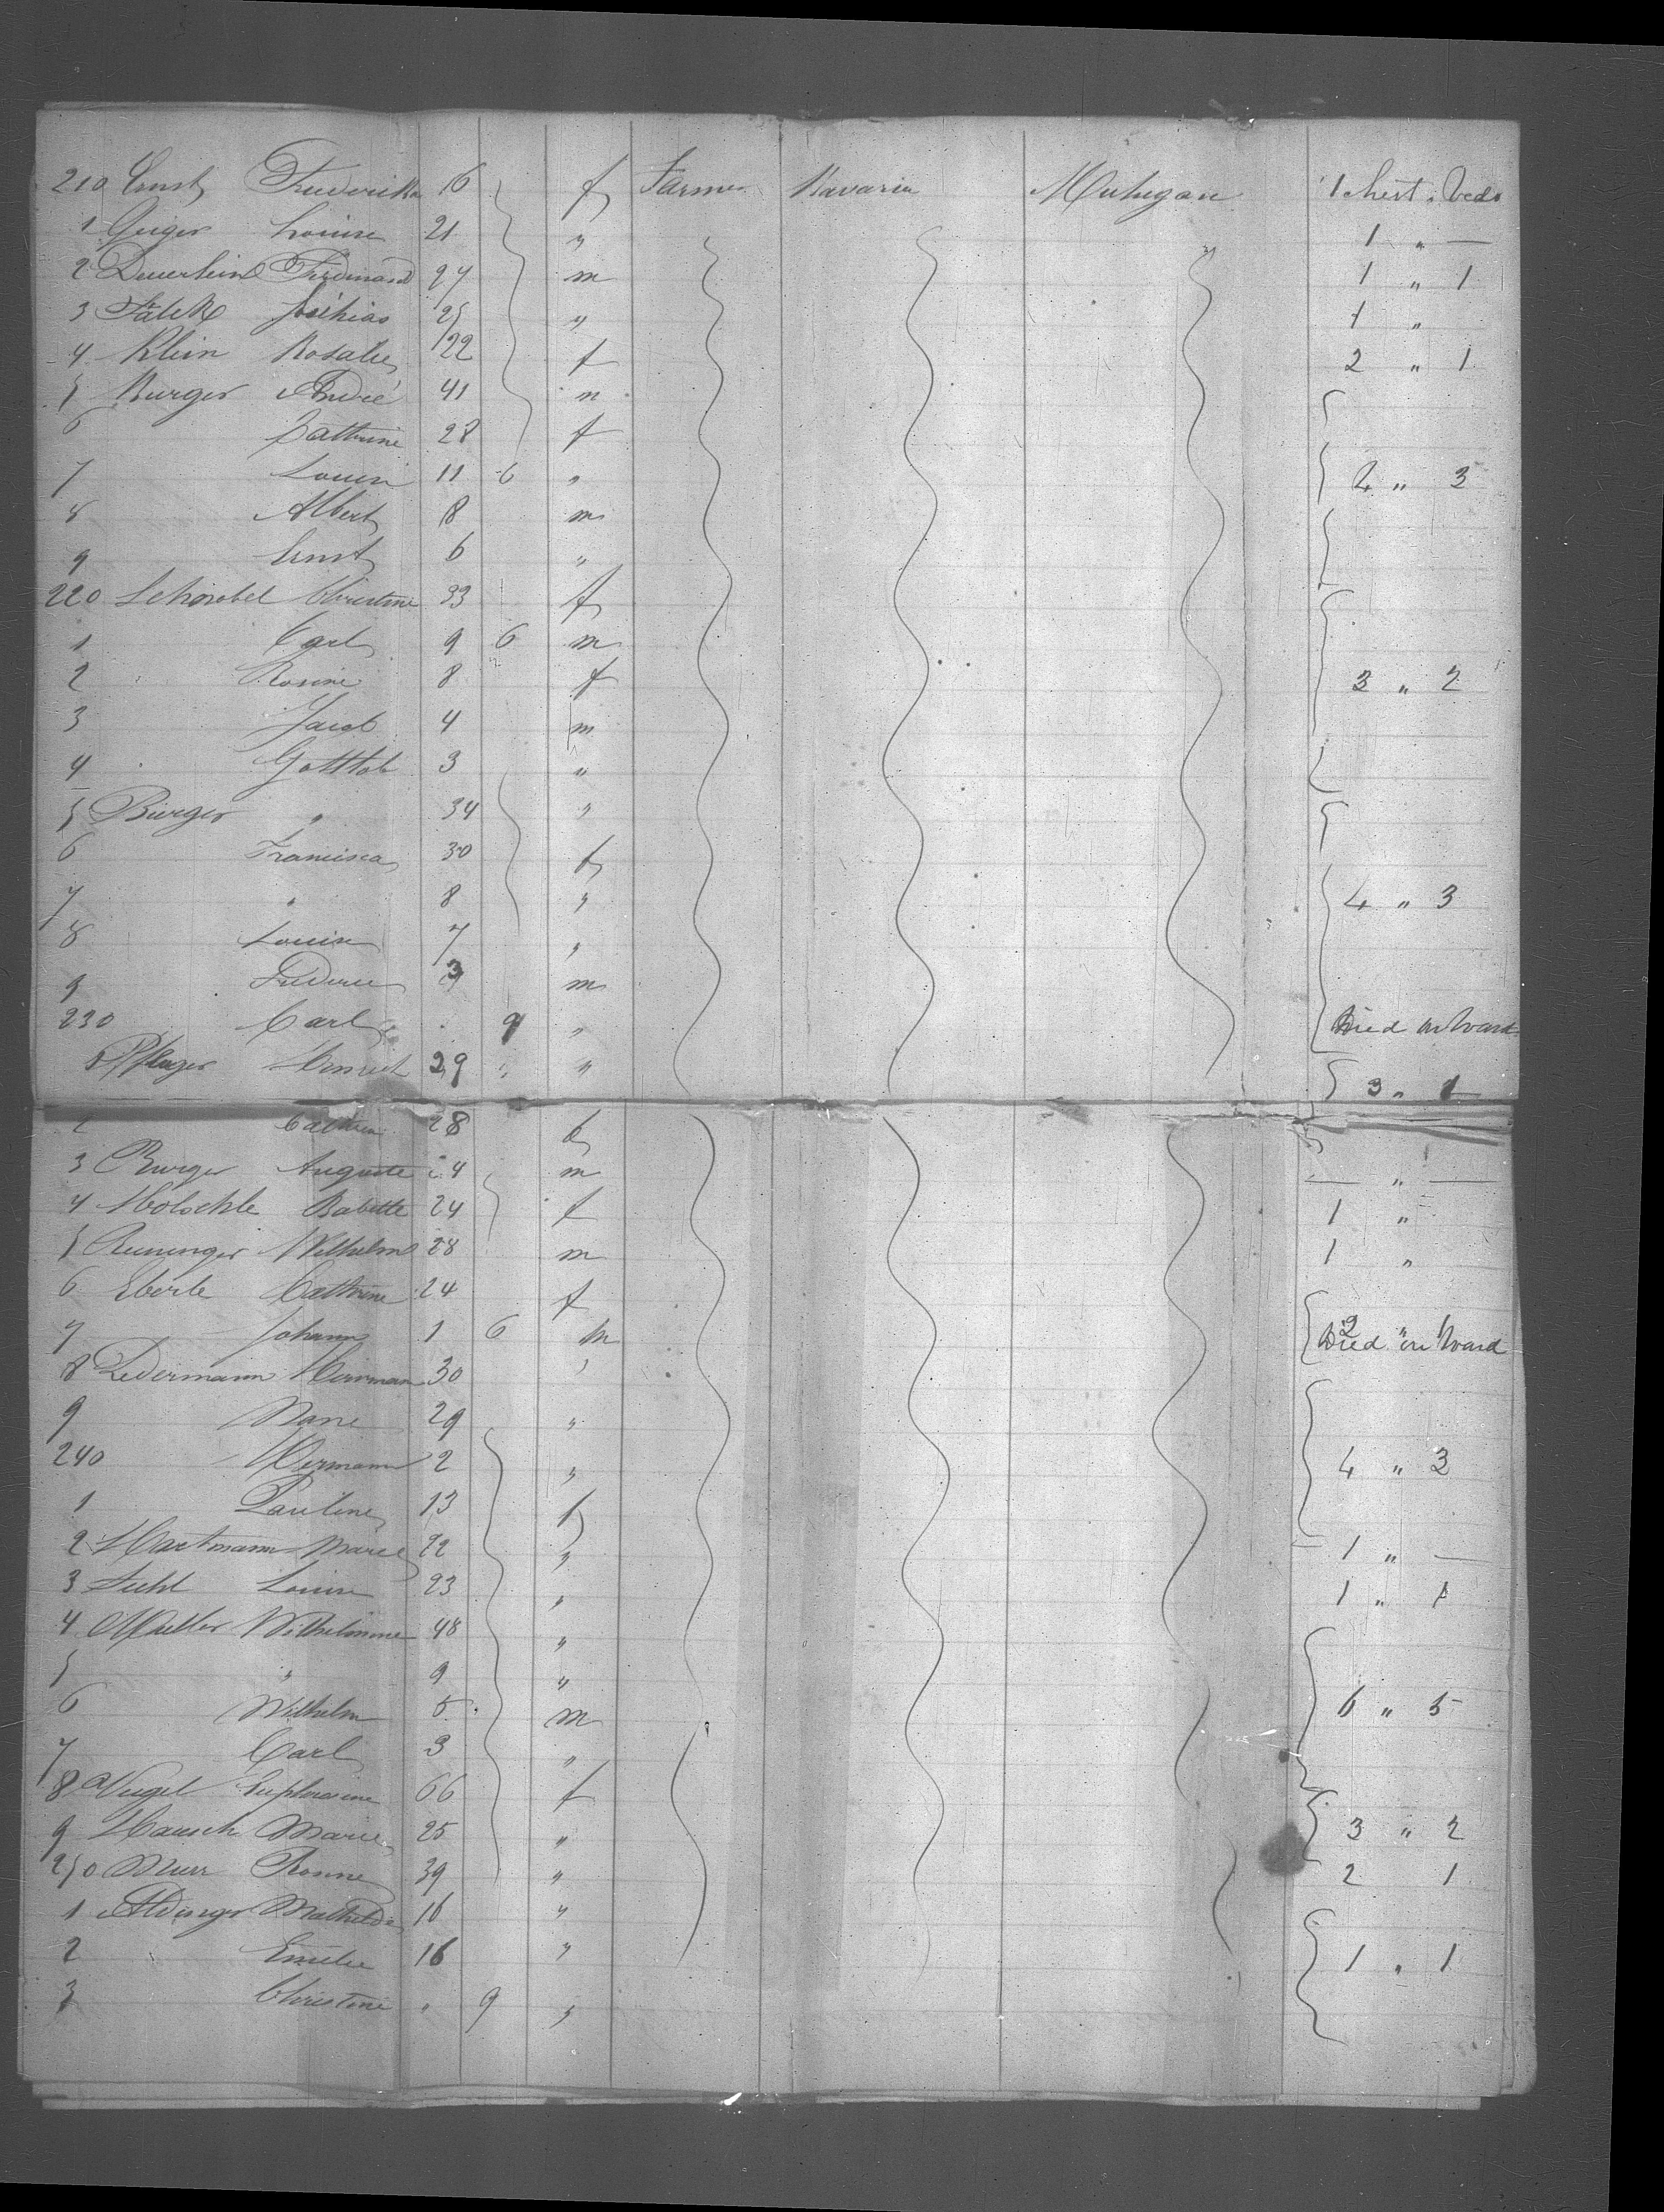 210 Ernst Frederika 16 f Farmer Bavaria Michigan 1 Chest " Beds
1 Geiger Louise 21 " 1 " —
2 Deuerlein Ferdinand 27 m 1 " 1
3 25 " 1 "
4 Klein Rosalie 22 f 2 " 1
5 Burger André 41 m
6 Cathrine 28 f
7 Louise 11 6 " 4 " 3
8 Albert 8 m
9 Ernst 6 "
220 Schnabel Christine 33 f
1 Carl 9 6 m
2 Rosine 8 f 3 " 2
3 Jacob 4 m
4 Gottlob 3 "
5 Burger " 34 "
6 Francisca 30 f
7 " 8 " 4 " 3
8 Louise 7 "
9 3 m
230 Carl 9 " Died on board
Pfleger Henrich 29 " " 3 " 1
2 28 f
3 Burger Auguste 24 m — " —
4 Babette 24 f 1 "
5 Reuninger Wilhelm 28 m 1 "
6 Eberle Cathrine 24 f 2 " 1
7 Johann 1 6 m Died on board
8 Ledermann Herrman 30 "
9 29 "
240 Hermann 2 " 4 " 3
1 Pauline 13 f
2 Hartmann Marie 22 " 1 " —
3 Louise 23 " 1 " 1
4 Mueller Wilhelmine 48 "
5 " 9 "
6 Wilhelm 5 m 6 " 5
7 Carl 3 "
8 Euphrosine 66 f
9 Hausch Marie 25 " 3 " 2
250 Murr Rosine 39 " 2 1
1 Aldinger Mathilde 16 "
2 " Emilie 16 " 1 " 1
3 Christine " 9 "